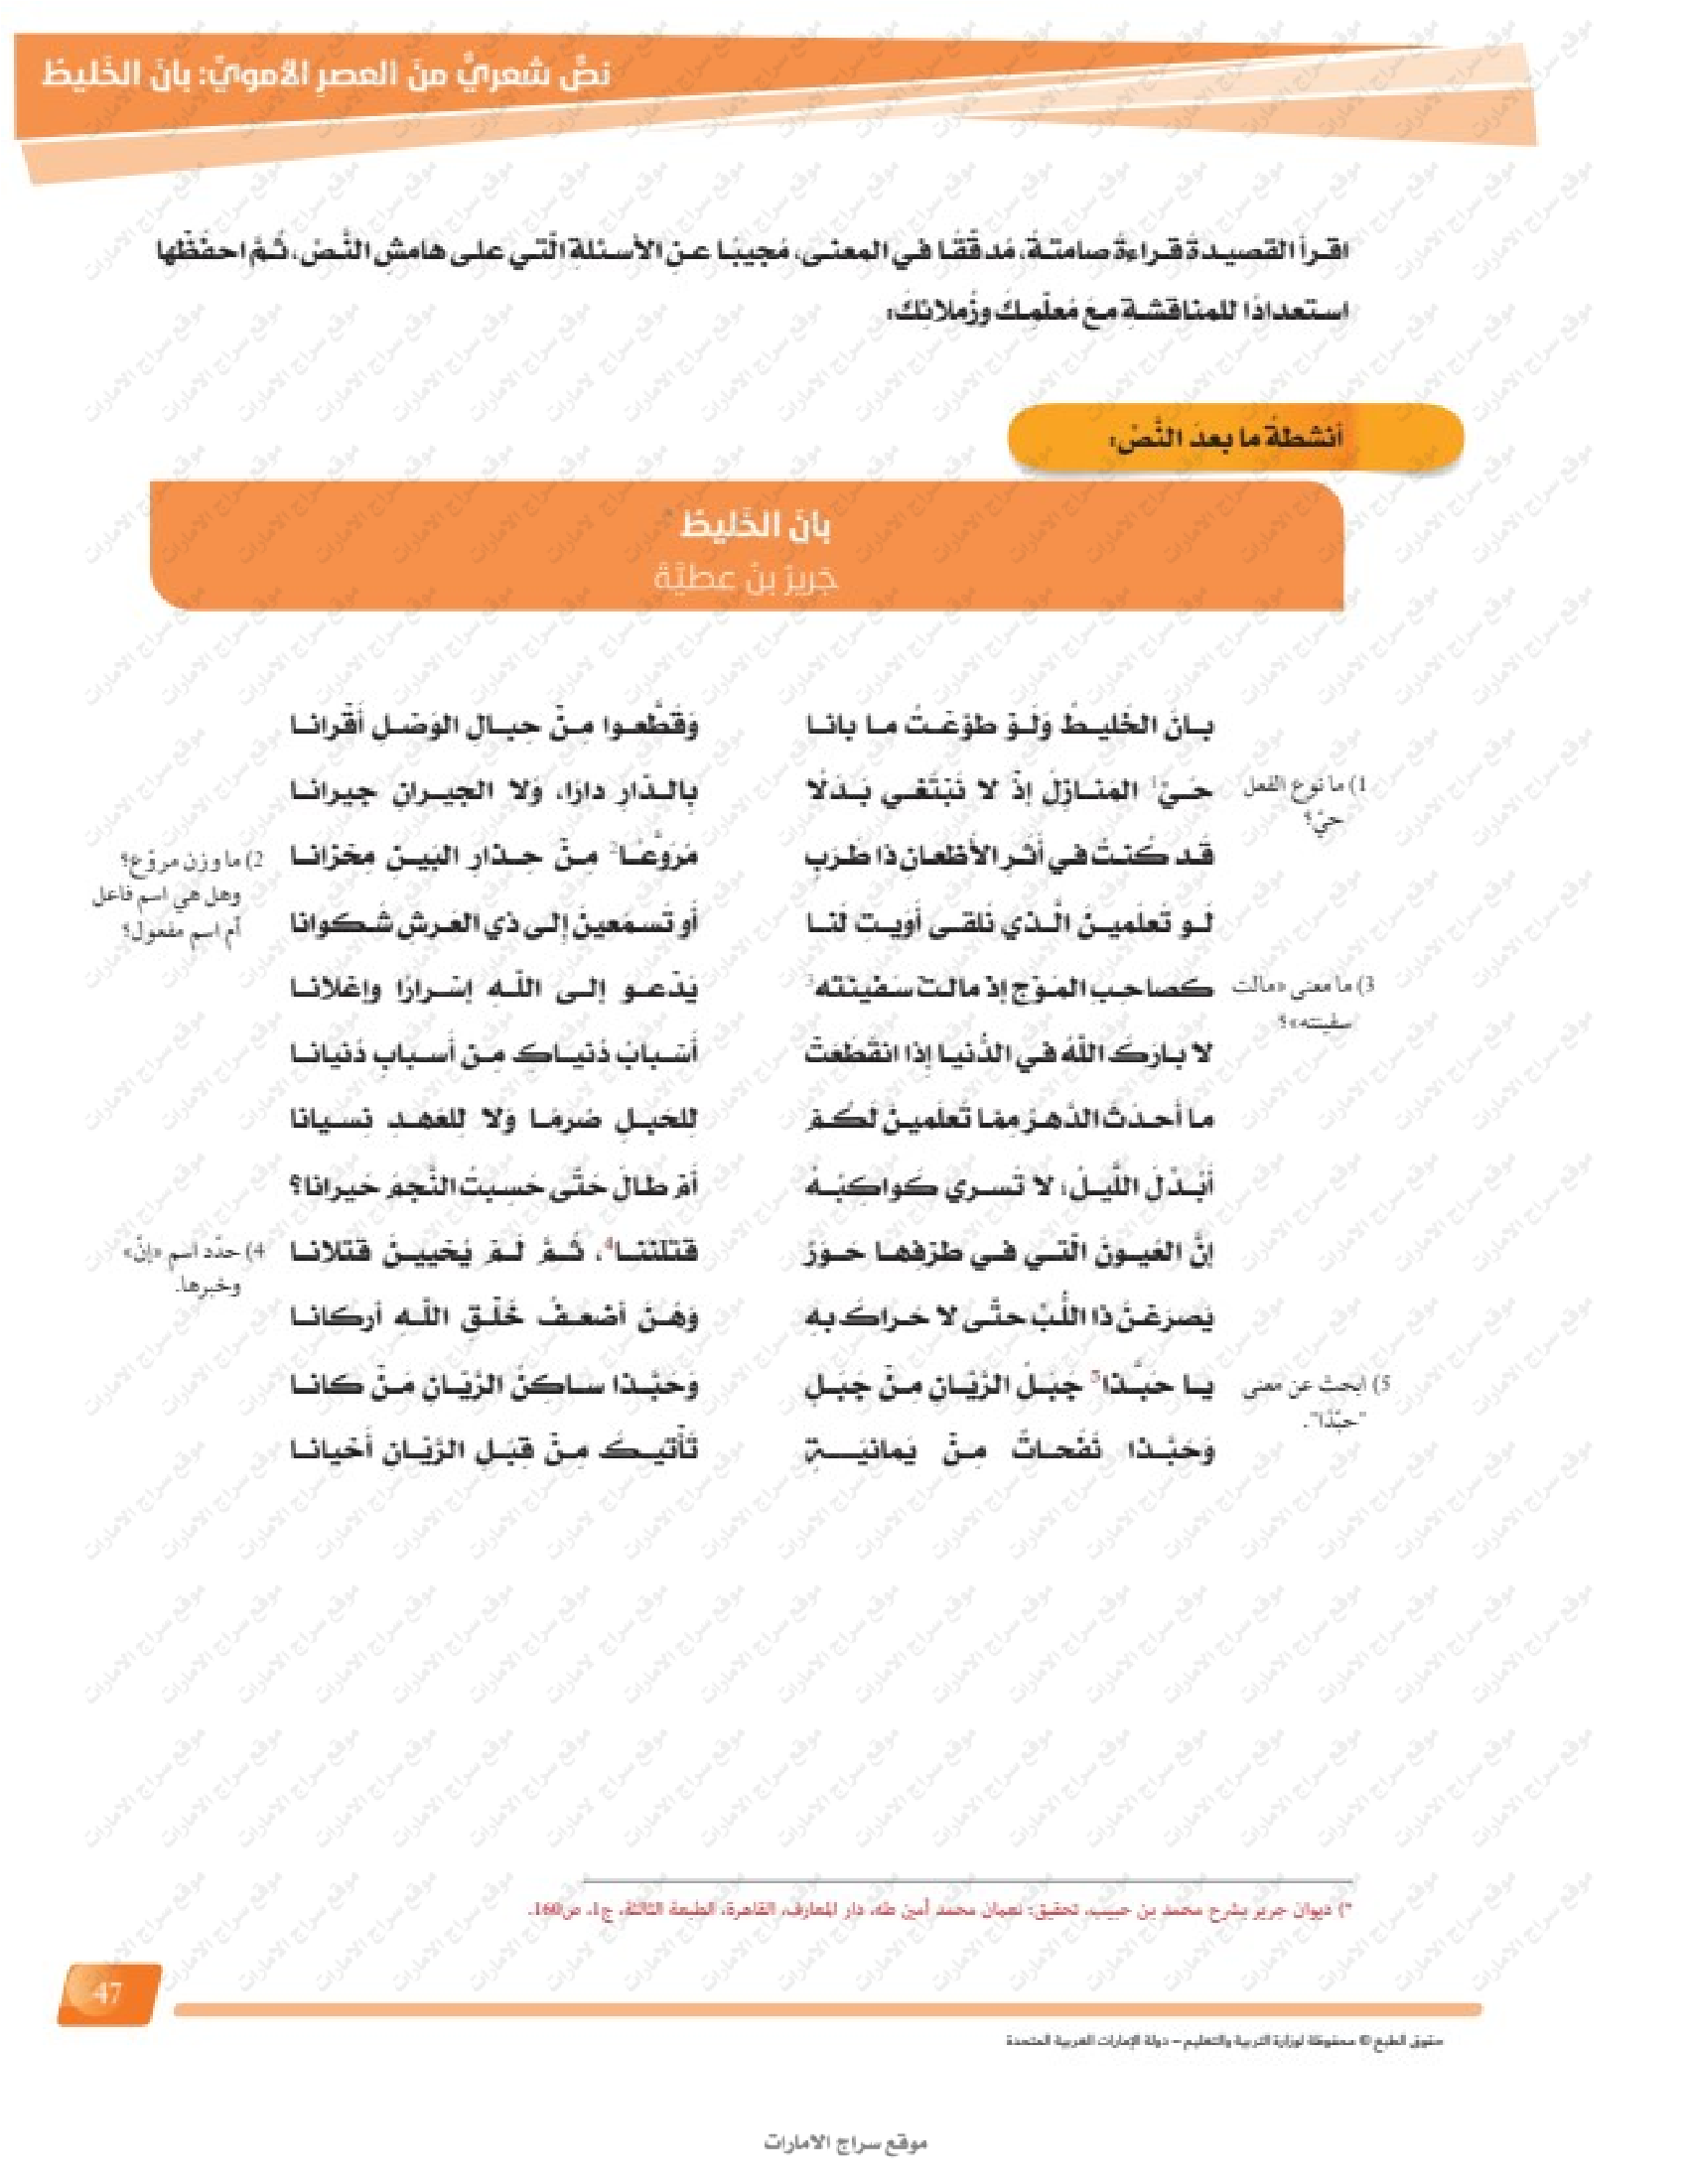 نصٌّ شعريٌّ منَ العصرِ الأمويِّ: بانَ الخَليطُ
اقرأ القصيدةَ قراءةً صامتةً، مُدقّقًا في المعنى، مُجيبًا عنِ الأسئلةِ الّتي على هامشِ النَّصِّ، ثُمَّ احفَظْها
استعدادًا للمناقشةِ معَ مُعلّمِكَ وزُملائِكَ:
أنشطةُ ما بعدَ النَّصِّ:
بانَ الخَليطُ*
جَريرُ بنُ عطيَّةَ
بانَ الخَليطُ وَلَوْ طوّعْتُ ما بانا وَقَطَّعوا مِنْ حِبالِ الوَصْلِ أَقْرانا
1) ما نوع الفعل حيّ؟
حَيِّ1 المَنازِلَ إذْ لا نَبْتَغي بَدَلًا بِالدّارِ دارًا، وَلا الجيرانِ جيرانا
قَد كُنتُ في أَثَرِ الأَظعانِ ذا طَرَبٍ مُرَوَّعًا2 مِنْ حِذارِ البَينِ مِحْزانا
2) ما وزن مروّع؟
وهل هي اسم فاعل
أم اسم مفعول؟
لَو تَعلَمينَ الَّذي نَلقى أَوَيتِ لَنا أَو تَسمَعينَ إلى ذي العَرشِ شَكوانا
كَصاحبِ المَوْجِ إذْ مالتْ سَفينَتُه3 يَدْعو إلى اللّهِ إسْرارًا وإعْلانا
3) ما معنى «مالت
سفينته»؟
لا بارَكَ اللّهُ في الدُّنيا إذا انقَطَعَتْ أَسْبابُ دُنياكِ مِنْ أَسبابِ دُنيانا
ما أَحدَثَ الدَّهرُ مِمّا تَعلَمينَ لَكُمْ لِلحَبلِ صُرمًا وَلا لِلعَهدِ نِسيانا
أَبُدِّلَ اللَّيلُ، لا تَسري كَواكِبُهُ أَمْ طالَ حَتّى حَسِبتُ النَّجمَ حَيرانا؟
إنَّ العُيونَ الّتي في طرْفِها حَوَرٌ قتلْنَنا4، ثُمَّ لَمْ يُحْيينَ قتْلانا
4) حدّد اسم «إنّ»
وخبرها.
يَصرَعْنَ ذا اللُّبِّ حتّى لا حَراكَ بهِ وَهُنَّ أضعفُ خَلْقِ اللّهِ أركانا
يا حَبَّذا5 جَبَلُ الرَّيّانِ مِنْ جَبَلٍ وَحَبَّذا ساكِنُ الرَّيّانِ مَنْ كانا
5) ابحث عن معنى
"حبّذا".
وَحَبَّذا نَفَحاتٌ مِنْ يَمانيَةٍ تَأْتيكَ مِنْ قِبَلِ الرَّيّانِ أَحْيانا
*) ديوان جرير بشرح محمد بن حبيب، تحقيق: نعمان محمد أمين طه، دار المعارف، القاهرة، الطبعة الثالثة، ج1، ص160.
47
حقوق الطبع © محفوظة لوزارة التربية والتعليم – دولة الإمارات العربية المتحدة
موقع سراج الامارات